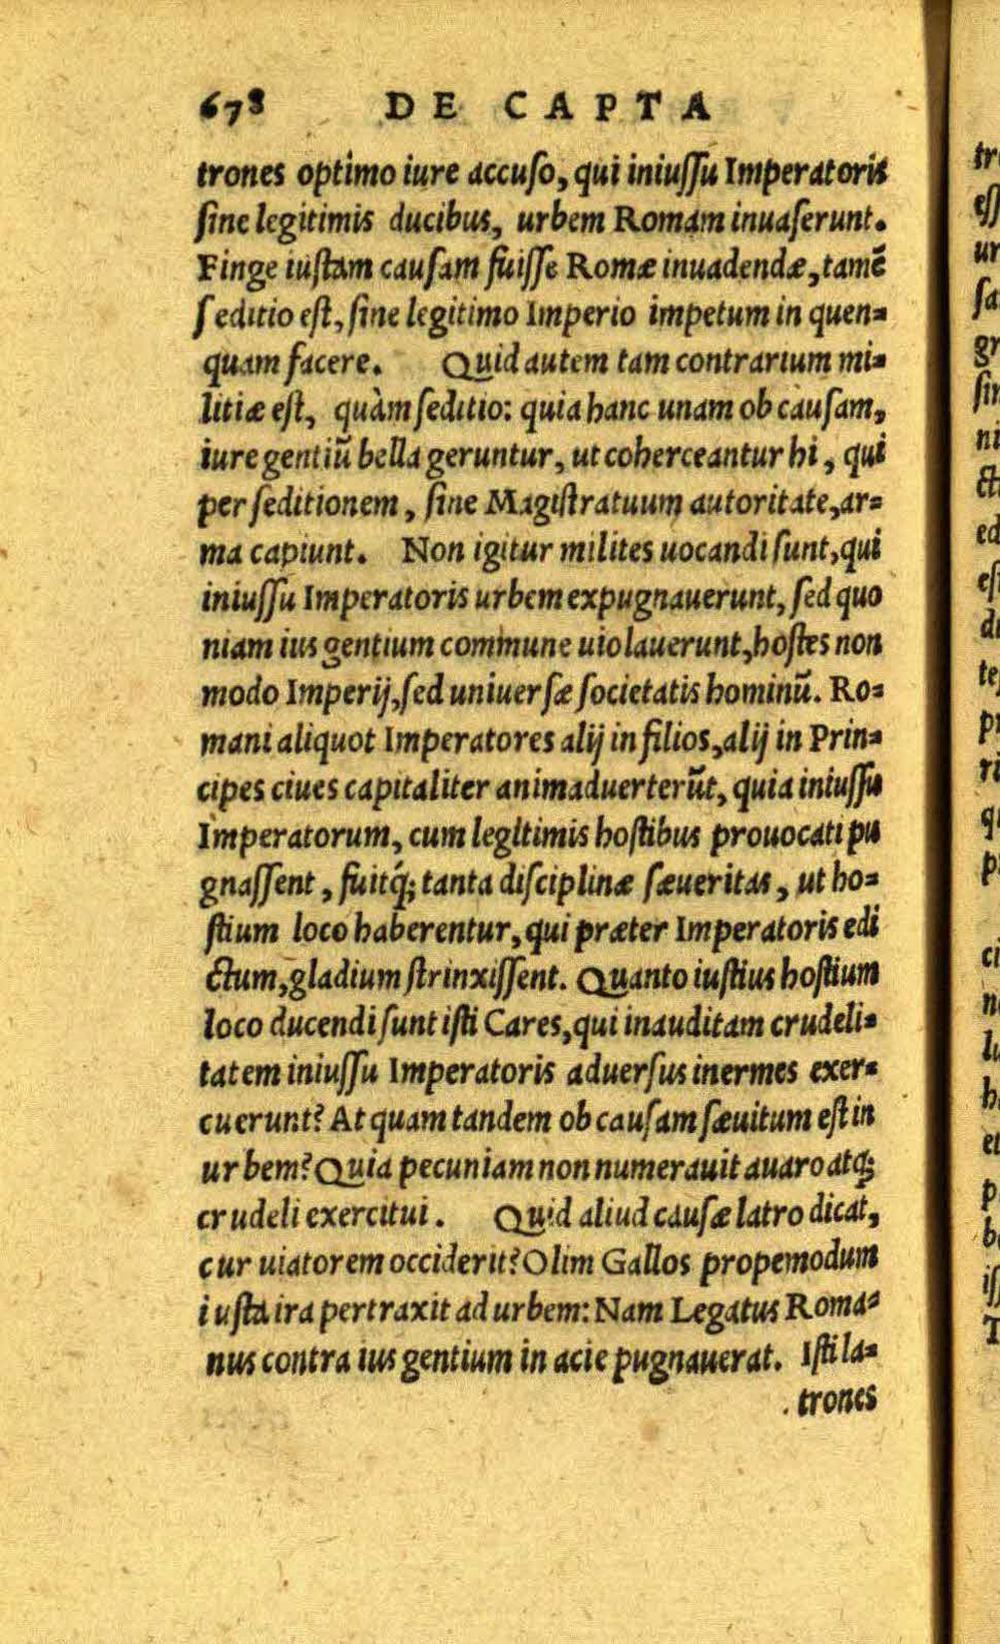 678 DE CAPTA
trones optimo iure accuſo, qui iniuſſu Imperatoris
ſine legitimis ducibus, urbem Romam inuaſerunt.
Finge iuſtam cauſam fuiſſe Romæ inuadendæ, tamẽ
ſeditio eſt, ſine legitimo Imperio impetum in quen=
quam facere. Quid autem tam contrarium mi=
litiæ eſt, quàm ſeditio: quia hanc unam ob cauſam,
iure gentiũ bella geruntur, ut coherceantur hi, qui
per ſeditionem, ſine Magiſtratuum autoritate, ar=
ma capiunt. Non igitur milites uocandi ſunt, qui
iniuſſu Imperatoris urbem expugnauerunt, ſed quo
niam ius gentium commune uiolauerunt, hoſtes non
modo Imperij, ſed uniuerſæ ſocietatis hominũ. Ro=
mani aliquot Imperatores alij in filios, alij in Prin=
cipes ciues capitaliter animaduerterũt, quia iniuſſu
Imperatorum, cum legitimis hoſtibus prouocati pu
gnaſſent, fuitq́; tanta diſciplinæ ſæueritas, ut ho=
ſtium loco haberentur, qui præter Imperatoris edi
ctum, gladium ſtrinxiſſent. Quanto iuſtius hoſtium
loco ducendi ſunt iſti Cares, qui inauditam crudeli=
tatem iniuſſu Imperatoris aduerſus inermes exer=
cuerunt? At quam tandem ob cauſam ſæuitum eſt in
urbem? Quia pecuniam non numerauit auaro atq;
crudeli exercitui. Quid aliud cauſæ latro dicat,
cur uiatorem occiderit? Olim Gallos propemodum
iuſta ira pertraxit ad urbem: Nam Legatus Roma=
nus contra ius gentium in acie pugnauerat. Iſti la=
trones